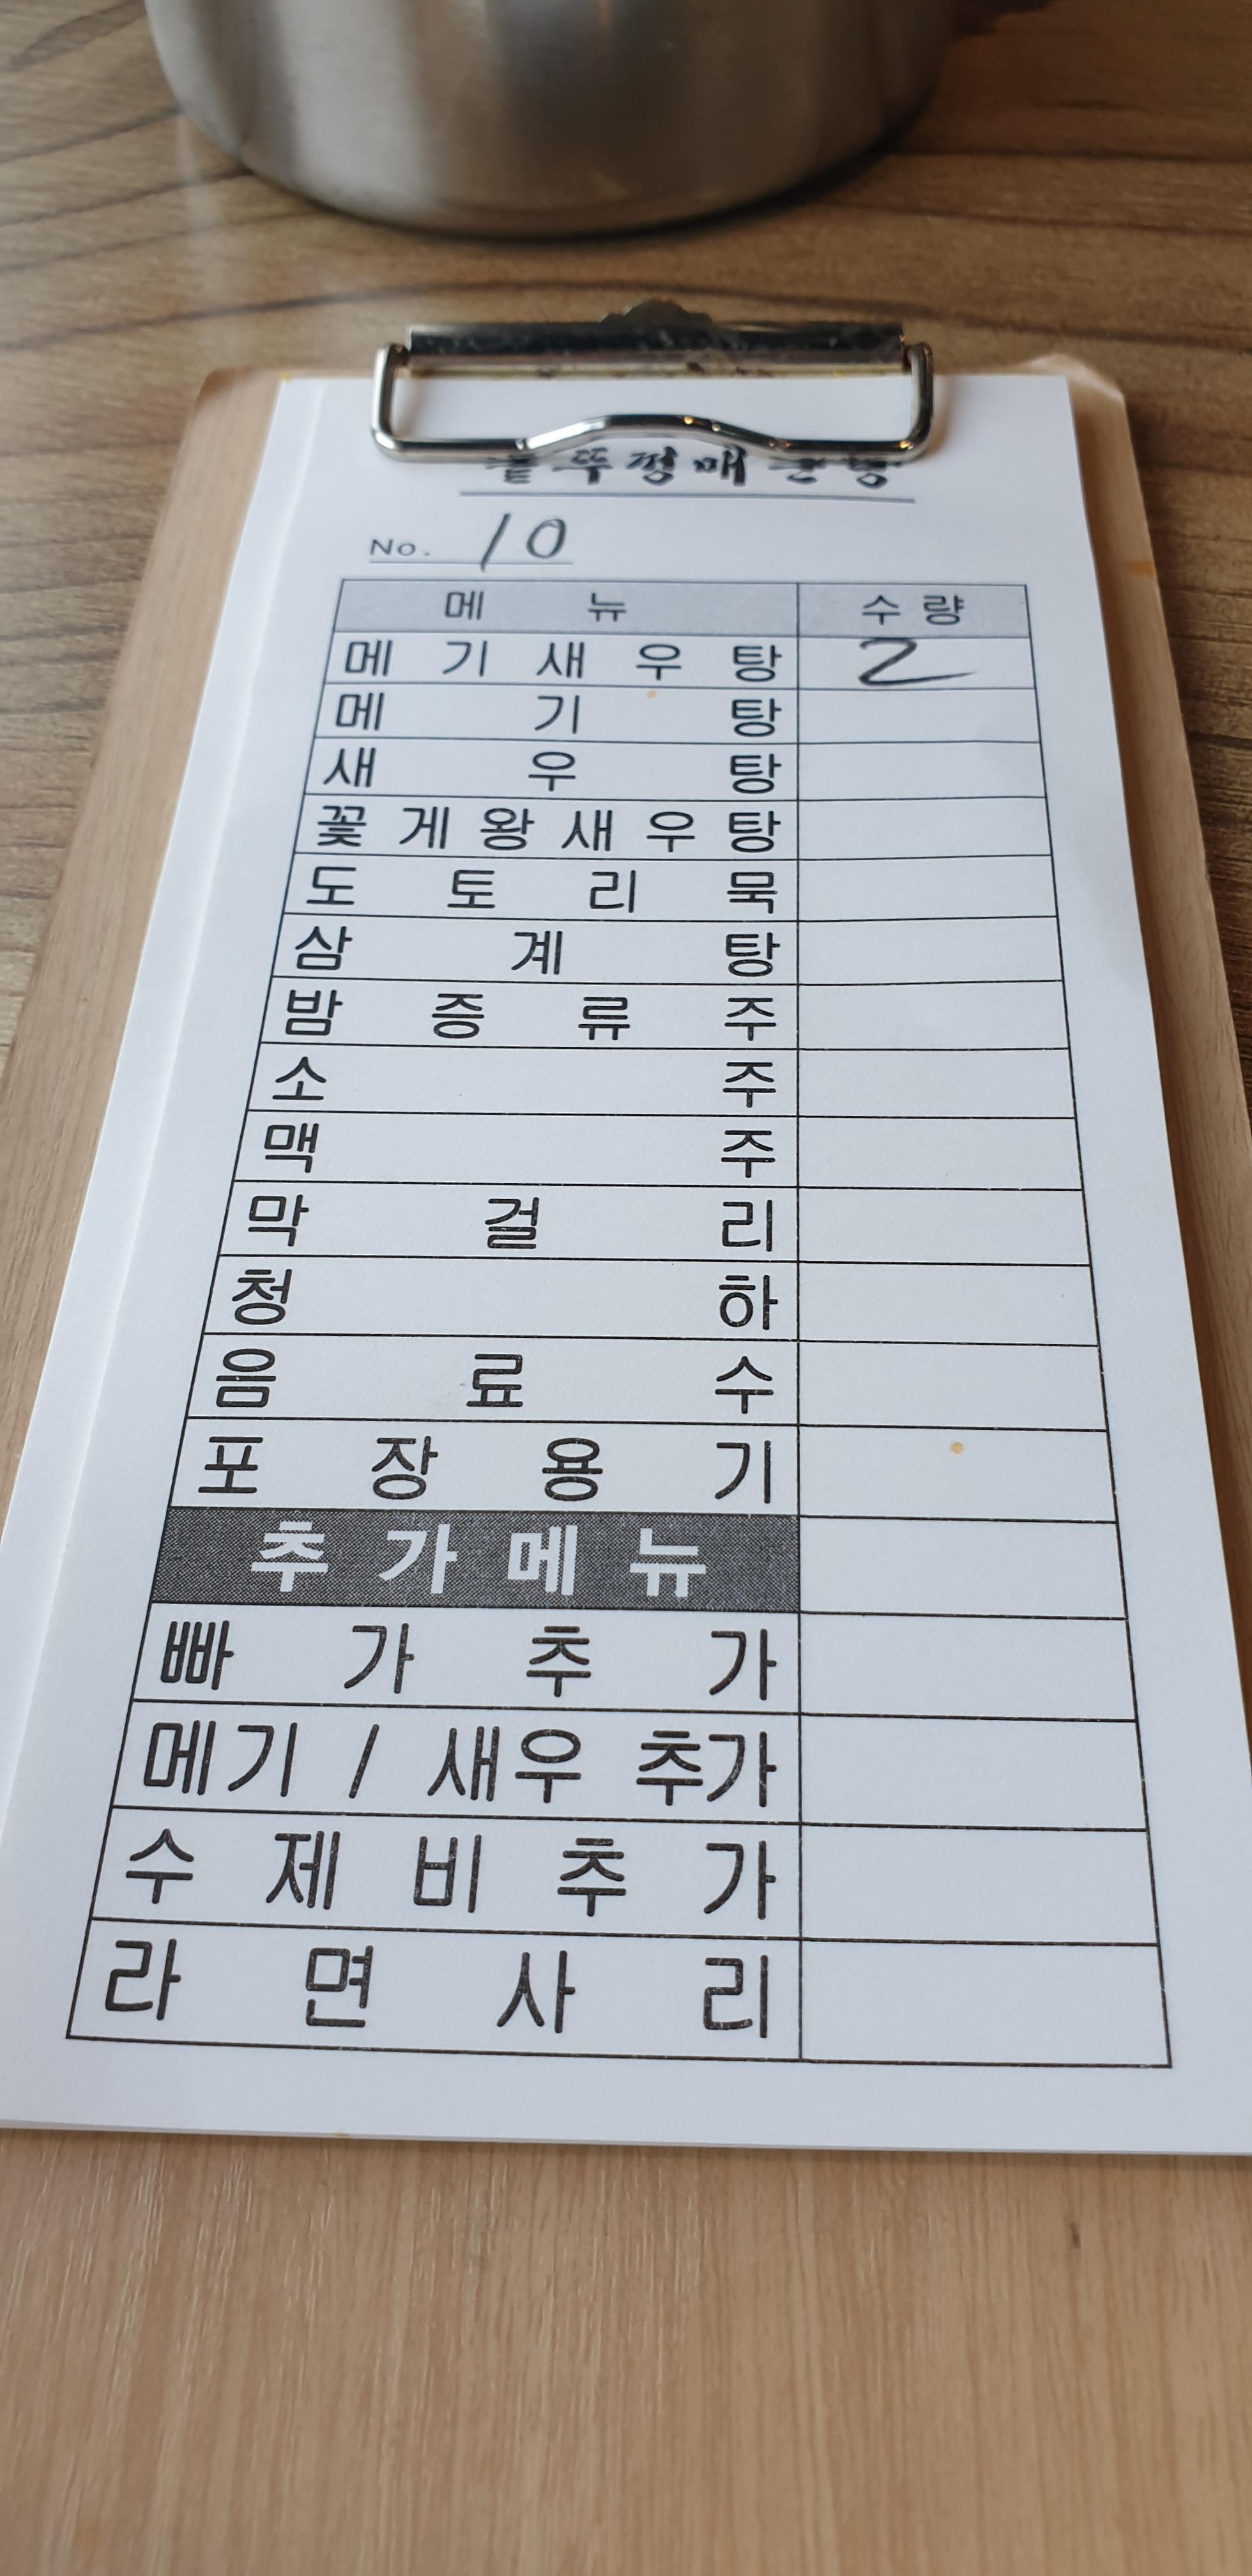 뚝평매운탕
No. 10
메뉴 수량
메기새우탕 2
메기탕
새우탕
꽃게왕새우탕
도토리묵
삼계탕
밤증류주
소주
맥주
막걸리
청하
음료수
포장용기
추가메뉴
빠가추가
메기 / 새우 추가
수제비추가
라면사리